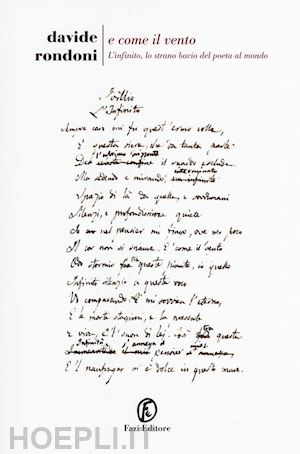 davide
rondoni
e come il vento
L'infinito, lo strano bacio del poeta al mondo
Idillio
L'Infinito
Sempre caro mi fu quest'ermo colle,
E questa siepe, che da tanta parte
il guardo esclude.
Ma sedendo e mirando,
interminato
Spazio di là da quella, e sovrumani
Silenzi, e profondissima quiete
Io nel pensier mi fingo, ove per poco
Il cor non si spaura. E come il vento
Odo stormir fra queste piante, io quello
Infinito silenzio a questa voce
Vo comparando: E mi sovvien l'eterno,
E le morte stagioni, e la presente
E viva, E 'l suon di lei. Così questa
E 'l naufragar m'è dolce in questo mare.
Fe
Fazi Editore
HOEPLI.it